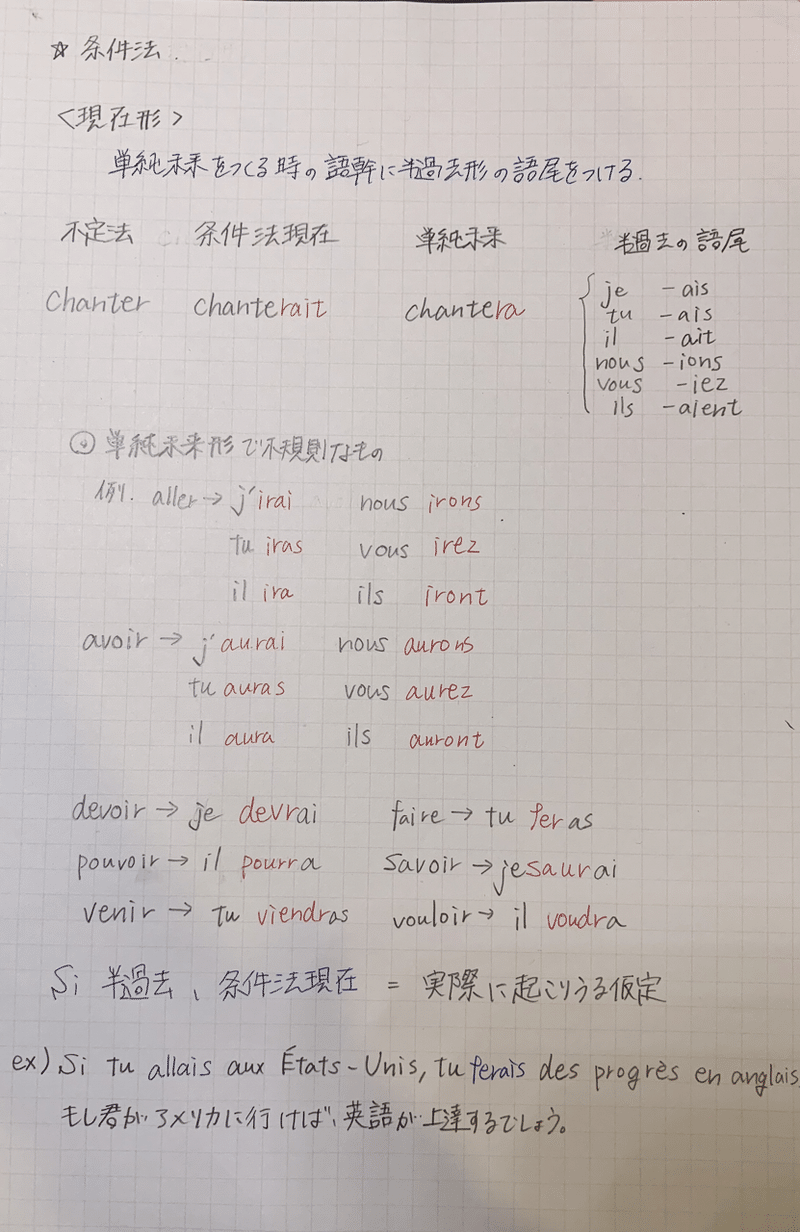 ☆ 条件法
<現在形>
単純未来をつくる時の語幹に半過去形の語尾をつける.
不定法 条件法現在 単純未来 半過去の語尾
chanter chanterait chantera
je -ais
tu -ais
il -ait
nous -ions
vous -iez
ils -aient
単純未来形で不規則なもの
例. aller → j'irai nous irons
tu iras vous irez
il ira ils iront
avoir → j'aurai nous aurons
tu auras vous aurez
il aura ils auront
devoir → je devrai faire → tu feras
pouvoir → il pourra savoir → je saurai
venir → tu viendras vouloir → il voudra
Si 半過去、条件法現在 = 実際に起こりうる仮定
ex) Si tu allais aux États-Unis, tu ferais des progrès en anglais
もし君がアメリカに行けば、英語が上達するでしょう。